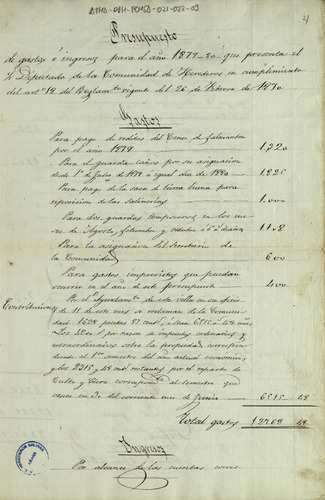 ATHA-DAH-PCMSA-021-022-03
Presupuesto
de gastos é ingresos para el año 1879-80 que presenta el
Diputado de la Comunidad de Herederos en cumplimiento
del artº 12 del Reglamtº vigente del 26 de Febrero de 1870
Gastos
Para pago de reditos del Censo de
por el año 1879 1,720
Para el guarda-caños por su asignacion
desde 1º de Julio de 1879 á igual dia de 1880 1,825
Para pago de la saca de tierra buena para
reposicion de las salineras 1.000
Para dos guardas temporeros en los me-
ses de Agosto, setiembre y 1,108
Para la asignacion del Secretario de
la Comunidad 600
Para gastos imprevistos que puedan
ocurrir en el año de este presupuesto 400
Contribuciones Por el Ayuntamtº de esta villa en su oficio
de 11 de este mes se reclaman de la Comuni-
dad 1628 pesetas 87 centº, ó sean 6515 48
por razon de impuestos ordinarios y
extraordinarios sobre la propiedad, correspon-
diente al 1er semestre del año actual economico,
y los 2315, 48 restantes por el reparto de
Culto y Clero correspondte al semestre que
vence en 30 del corriente mes de Junio 6515 48
Total gastos 48
Ingresos
Por alcance de las cuentas corre